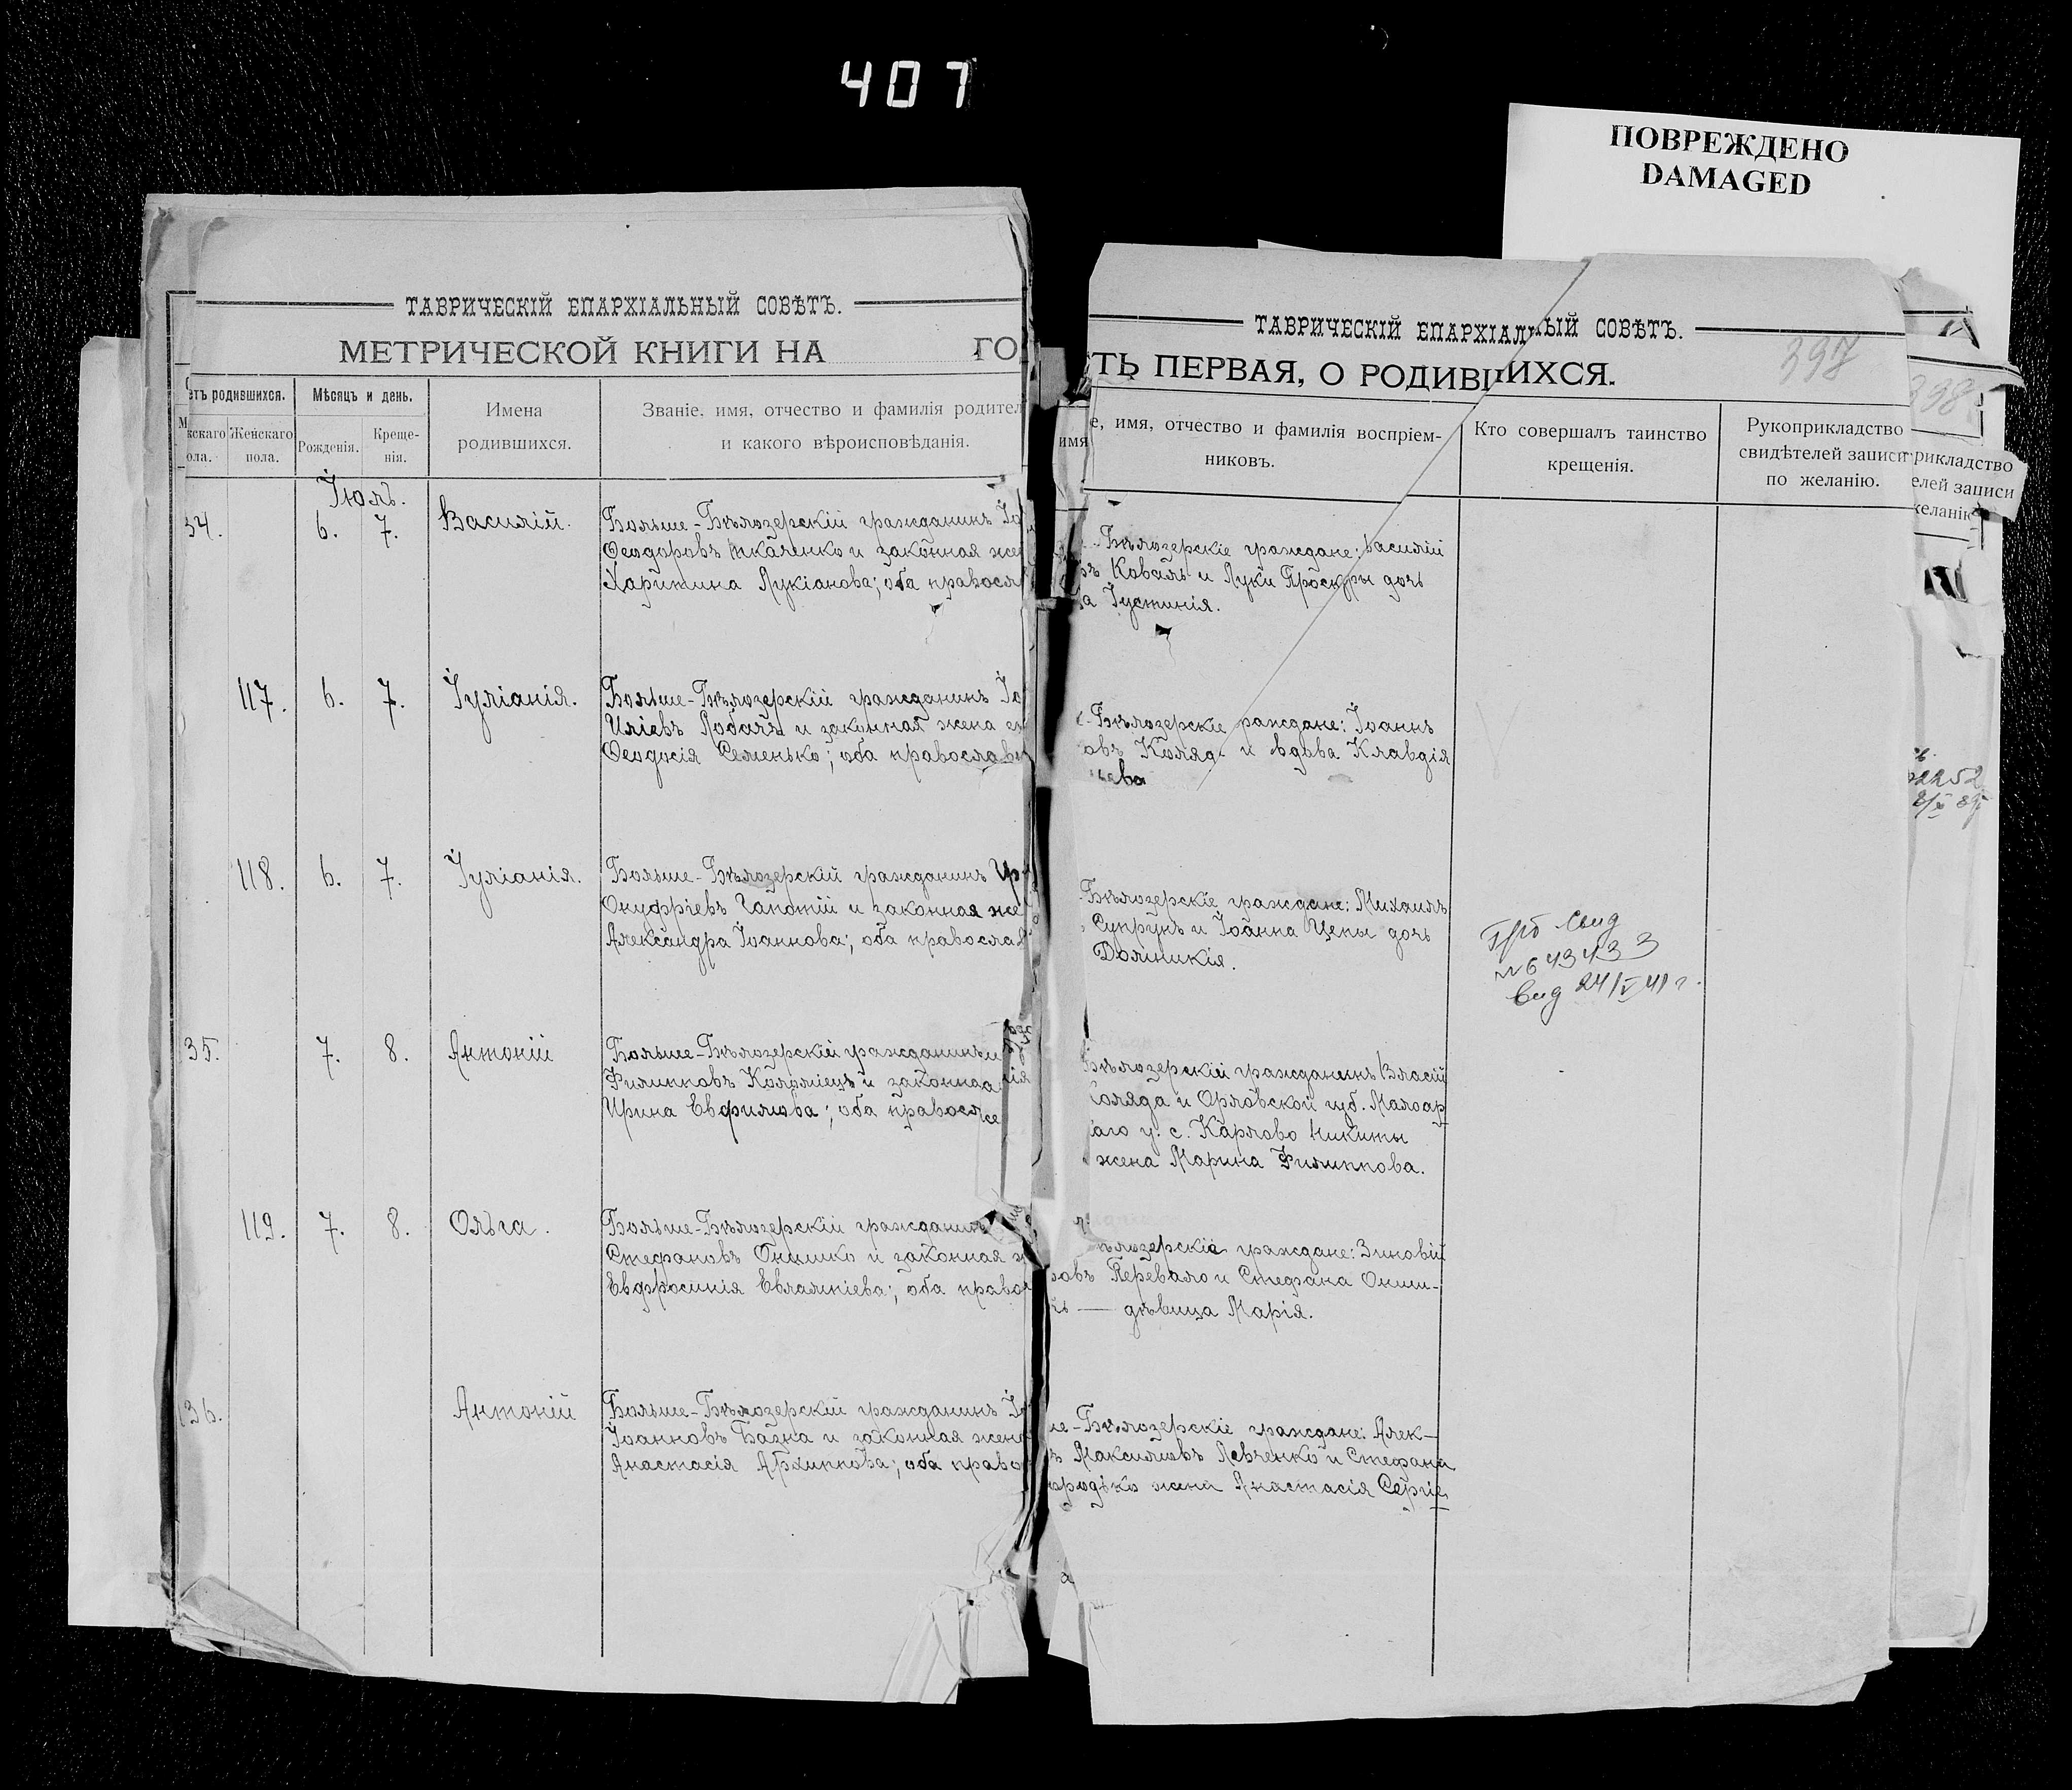 407
ПОВРЕЖДЕНО
DAMAGED
ТАВРИЧЕСКІЙ ЕПАРХІАЛЬНЫЙ СОВѢТЪ.
МЕТРИЧЕСКОЙ КНИГИ НА ГО
етъ родившихся.
Мѣсяцъ и день.
Имена
родившихся.
Званіе, имя, отчество и фамилія родител
и какого вѣроисповѣданія.
жскаго
ола.
Женскаго
пола.
Рожденія.
Креще-
нія.
Іюль.
34. 6. 7. Василій.
Больше-Бѣлозерскій гражданинъ Іо
Ѳеодоровъ Ткаченко и законная же
Харитина Лукіанова; оба правосл
117. 6. 7. Іуліанія.
Больше-Бѣлозерскій гражданинъ Іо
Иліевъ Лобачъ и законная жена е
Ѳеодосія Семенько; оба православ
118. 6. 7. Іуліанія.
Больше-Бѣлозерскій гражданинъ
Онуфріевъ Гапотій и законная же
Александра Іоаннова; оба православ
35. 7. 8. Антоній
Больше-Бѣлозерскій гражданинъ
Филипповъ Коломіецъ и законна
Ирина Евфимова; оба правосл
119. 7. 8. Ольга.
Больше-Бѣлозерскій гражданинъ
Стефановъ Онишко и законная ж
Евфросинія Евлампіева; оба право
136. Антоній
Больше-Бѣлозерскій гражданинъ
Іоанновъ Багна и законная жена
Анастасія Архиппова; оба право
ТАВРИЧЕСКІЙ ЕПАРХІАЛЬНЫЙ СОВѢТЪ.
397
ТЬ ПЕРВАЯ, О РОДИВШИХСЯ.
398
е, имя, отчество и фамилія воспріем-
никовъ.
Кто совершалъ таинство
крещенія.
Рукоприкладство
свидѣтелей записи
по желанію.
рикладство
елей записи
желанію
имя
-Бѣлозерскіе граждане: Василій
ъ Коваль и Луки Проскуры дочь
а Іустинія.
-Бѣлозерскіе граждане: Іоаннъ
овъ Коляд и вдова Клавдія
ьева
-Бѣлозерскіе граждане: Михаилъ
Супрунъ и Іоанна Цепы дочь
Домникія.
№ 643433
вид 24/V 41 г.
Бѣлозерскій гражданинъ Власій
Коляда и Орловской губ. Малоар
аго у. с. Карлово Никиты
жена Марина Филиппова.
ѣлозерскіе граждане: Зиновій
ровъ Перевало и Стефана Ониш-
дѣвица Марія.
ше-Бѣлозерскіе граждане: Алек-
ъ Максимовъ Левченко и Стефана
ородько жена Анастасія Сергіе